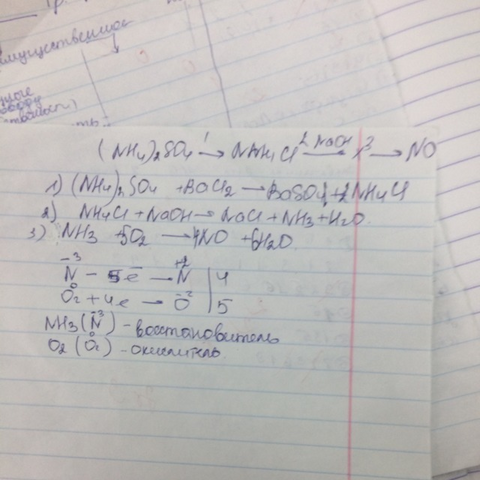 имущественное
(NH4)2SO4 1→ NH4Cl 2 NaOH→ X 3→ NO
1) (NH4)2SO4 + BaCl2 → BaSO4 + 2NH4Cl
2) NH4Cl + NaOH → NaCl + NH3 + H2O
3) NH3 + 5O2 → 4NO + 6H2O
N⁻³ − 5e → N⁺² | 4
O2⁰ + 4e → O⁻² | 5
NH3 (N⁻³) - восстановитель
O2 (O2⁰) - окислитель